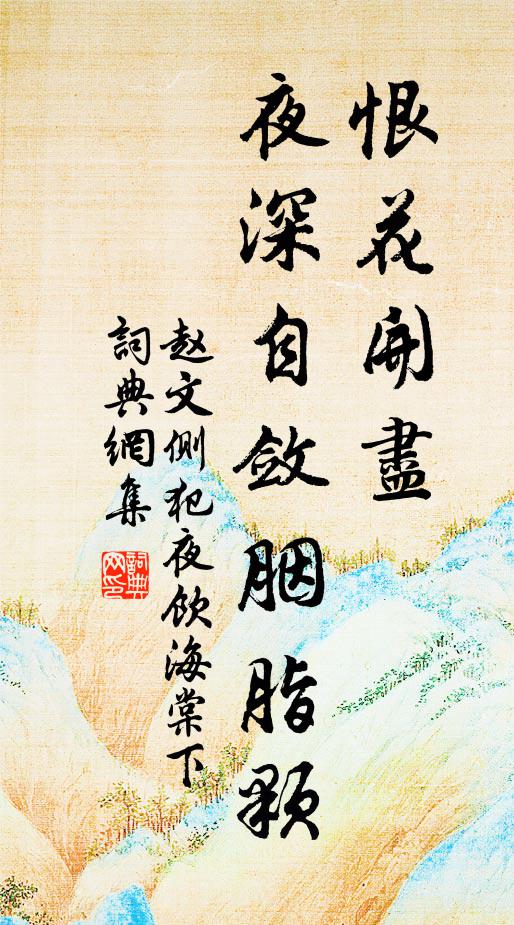 恨花開盡
夜深自斂胭脂顆
赵文侧犯夜飲海棠下
詞典網集
詞典网印